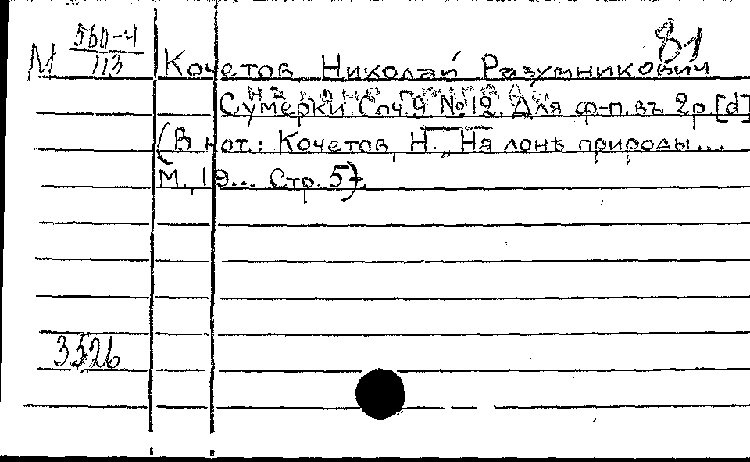 81
М 560-4/113 Кочетов, Николай Разумникович
Сумерки. Соч. 9 № 12. Для ф-п. въ 2 р. [d]
(В нот.: Кочетов, Н. „На лонѣ природы...
М., 19... Стр. 5).
3526